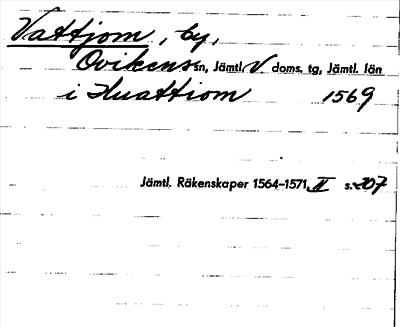 Vattjom, by,
Ovikens sn, Jämtl. V doms. tg, Jämtl. län
i Huattiom 1569
Jämtl. Räkenskaper 1564-1571, II s. 207